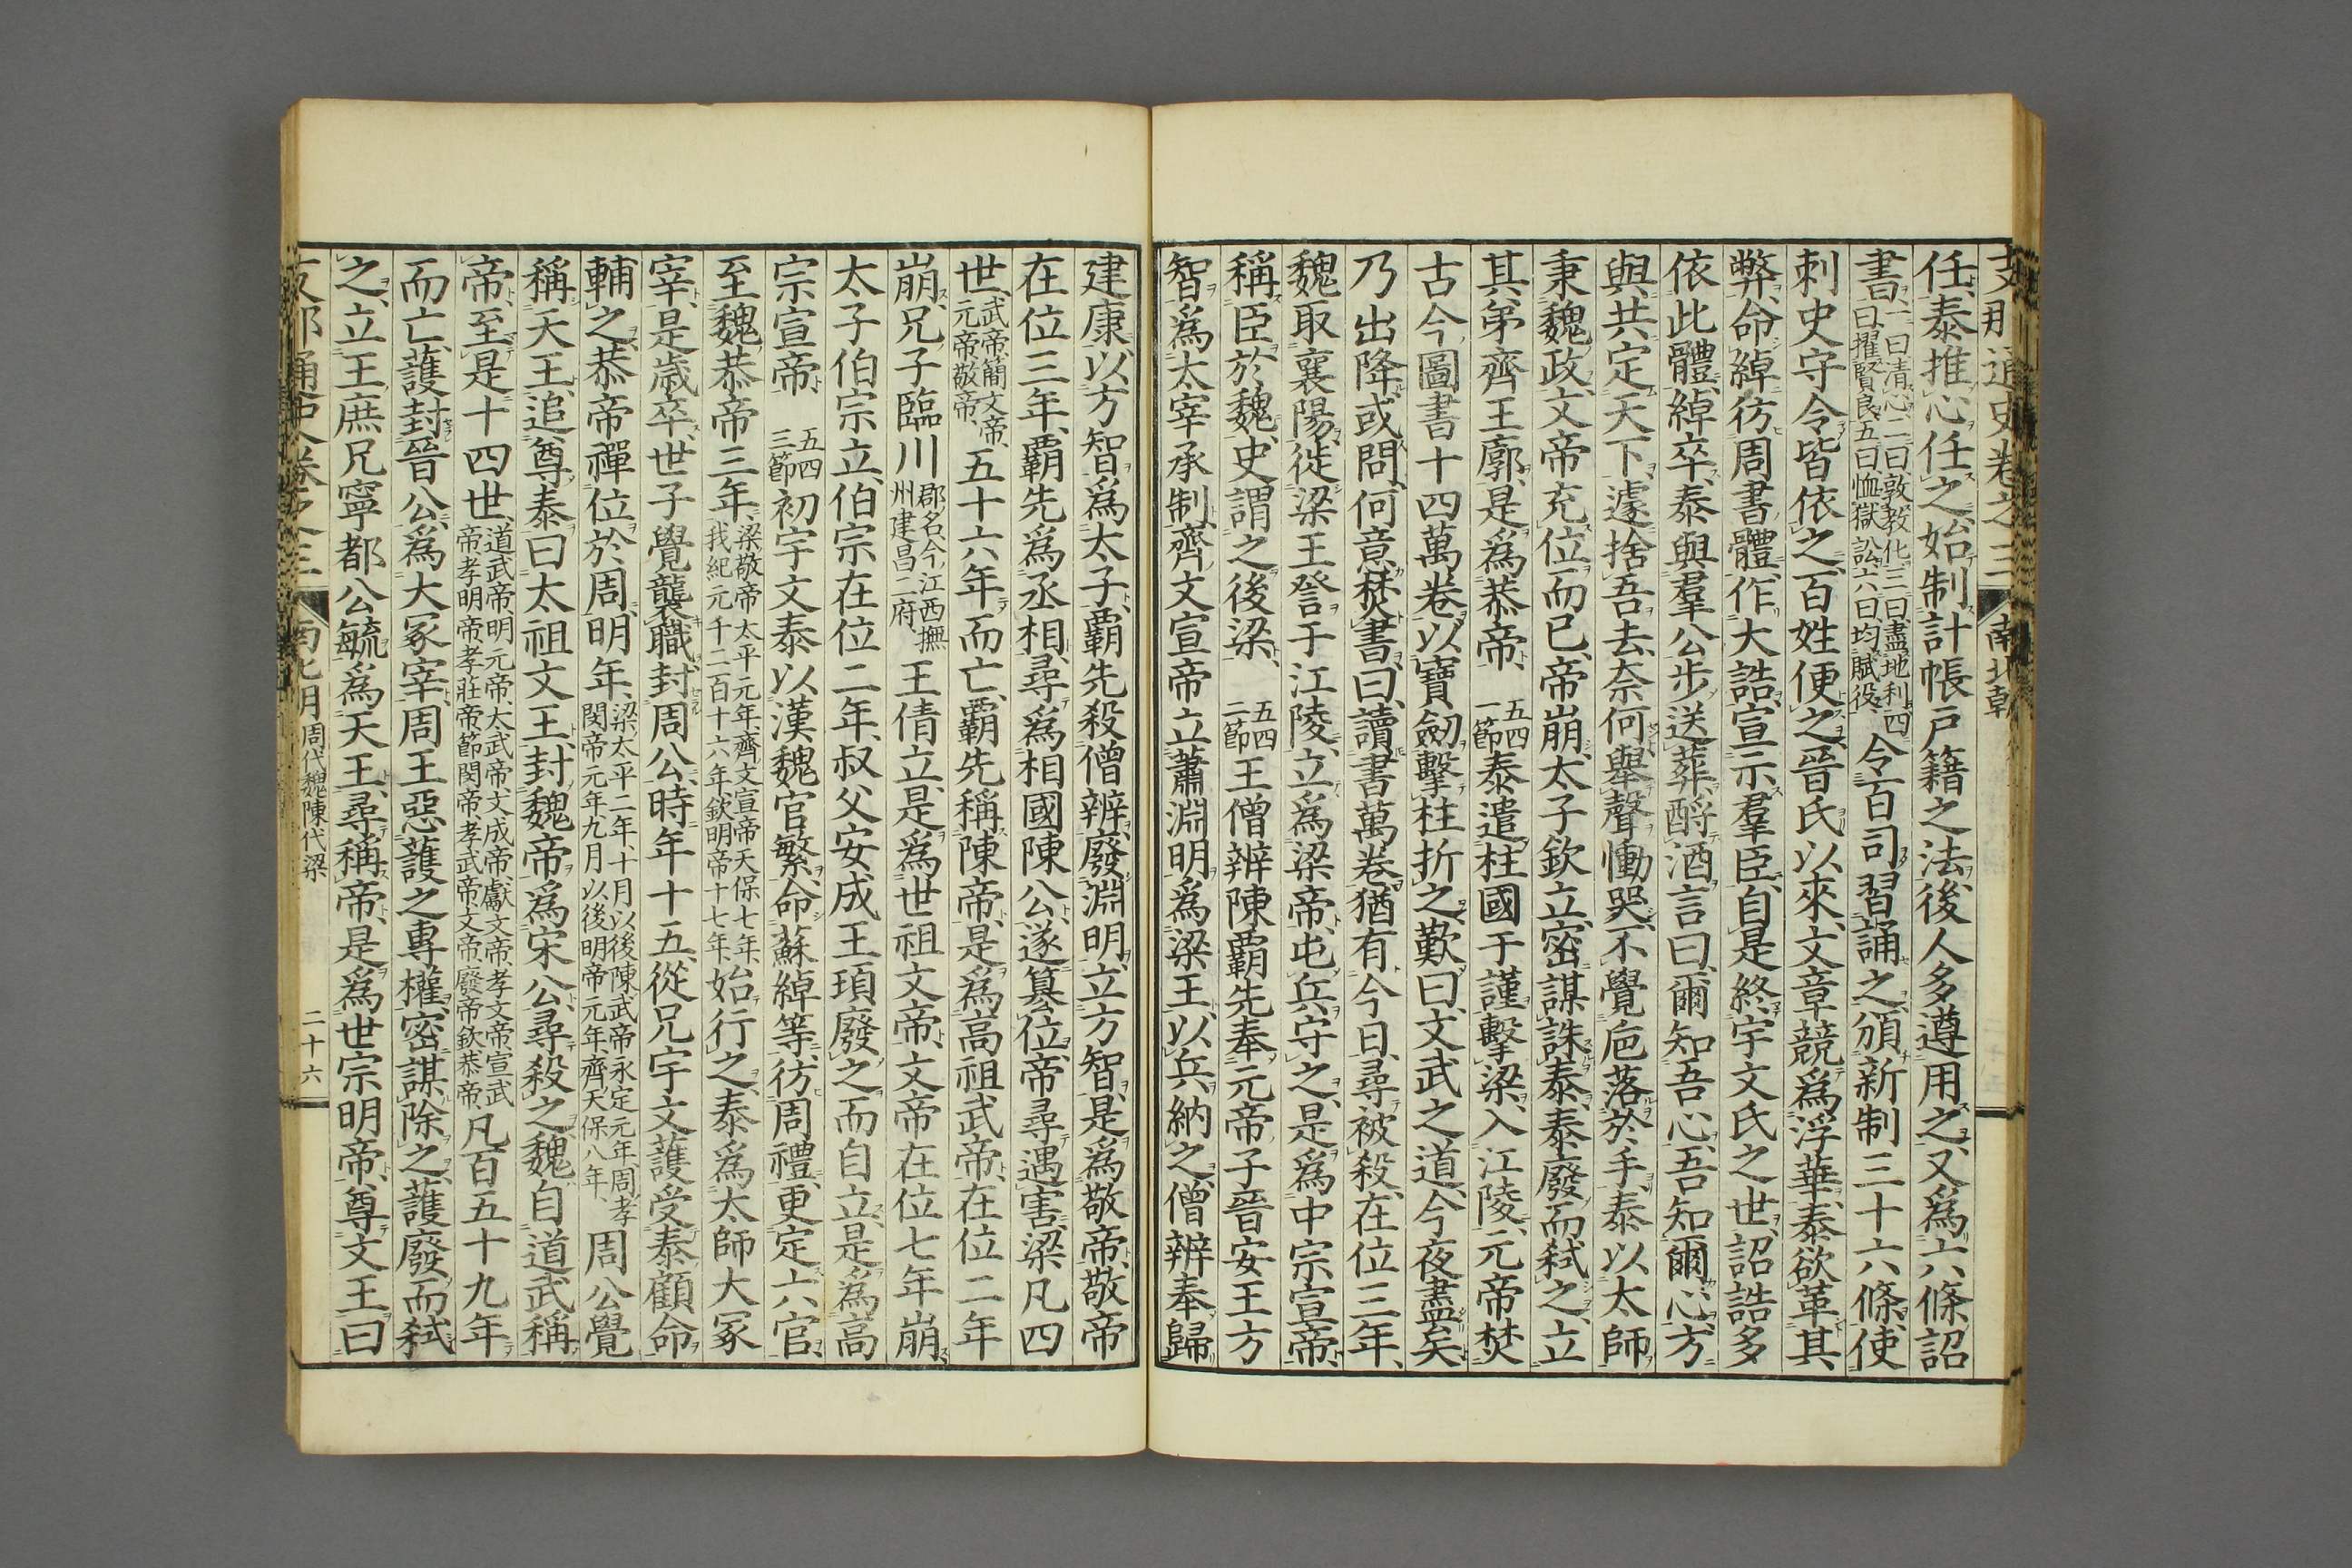 支那通史卷之三 南北朝
任、泰推心任之、始制計帳戸籍之法、後人多遵用之、又爲六條詔
書、一曰清心、二曰敦教化、三曰盡地利、四曰擢賢良、五曰恤獄訟、六曰均賦役、令百司習誦之、頒新制三十六條、使
刺史守令皆依之、百姓便之、晉氏以來、文章競爲浮華、泰欲革其
弊、命綽彷周書體、作大誥、宣示羣臣、自是終宇文氏之世、詔誥多
依此體、綽卒、泰與羣公步送葬、酹酒言曰、爾知吾心、吾知爾心、方
與共定天下、遽捨吾去、奈何、舉聲慟哭、不覺巵落於手、泰以太師
秉魏政、文帝充位而已、帝崩、太子欽立、密謀誅泰、泰廢而弑之、立
其弟齊王廓、是爲恭帝、 五四一節 泰遣柱國于謹擊梁、入江陵、元帝焚
古今圖書十四萬卷、以寶劒擊柱折之、歎曰、文武之道、今夜盡矣、
乃出降、或問何意焚書、曰、讀書萬卷、猶有今日、尋被殺、在位三年、
魏取襄陽、徙梁王詧于江陵、立爲梁帝、屯兵守之、是爲中宗宣帝、
稱臣於魏、史謂之後梁、 五四二節 王僧辨陳覇先奉元帝子晉安王方
智爲太宰承制、齊文宣帝立蕭淵明爲梁王、以兵納之、僧辨奉歸
建康、以方智爲太子、覇先殺僧辨、廢淵明、立方智、是爲敬帝、敬帝
在位三年、覇先爲丞相、尋爲相國陳公、遂簒位、帝尋遇害、梁凡四
世、武帝、簡文帝、元帝、敬帝、五十六年而亡、覇先稱陳帝、是爲高祖武帝、在位二年
崩、兄子臨川郡名、今江西撫州建昌二府王倩立、是爲世祖文帝、文帝在位七年崩、
太子伯宗立、伯宗在位二年、叔父安成王頊廢之而自立、是爲高
宗宣帝、 五四三節 初宇文泰以漢魏官繁、命蘇綽等、彷周禮、更定六官、
至魏恭帝三年、梁敬帝太平元年、齊文宣帝天保七年、我紀元千二百十六年、欽明帝十七年、始行之、泰爲太師大冢
宰、是歲卒、世子覺襲職、封周公、時年十五、從兄宇文護受泰顧命
輔之、恭帝禪位於周、明年、梁太平二年、十月以後陳武帝永定元年、周孝閔帝元年、九月以後明帝元年、齊天保八年、周公覺
稱天王、追尊泰曰太祖文王、封魏帝爲宋公、尋殺之、魏自道武稱
帝、至是十四世、道武帝、明元帝、太武帝、文成帝、獻文帝、孝文帝、宣武帝、孝明帝、孝莊帝、節閔帝、孝武帝、文帝、廢帝欽、恭帝、凡百五十九年
而亡、護封晉公、爲大冢宰、周王惡護之專權、密謀除之、護廢而弑
之、立王庶兄寧都公毓爲天王、尋稱帝、是爲世宗明帝、尊文王曰
支那通史卷之三 南北朝 周代魏陳代梁 二十六